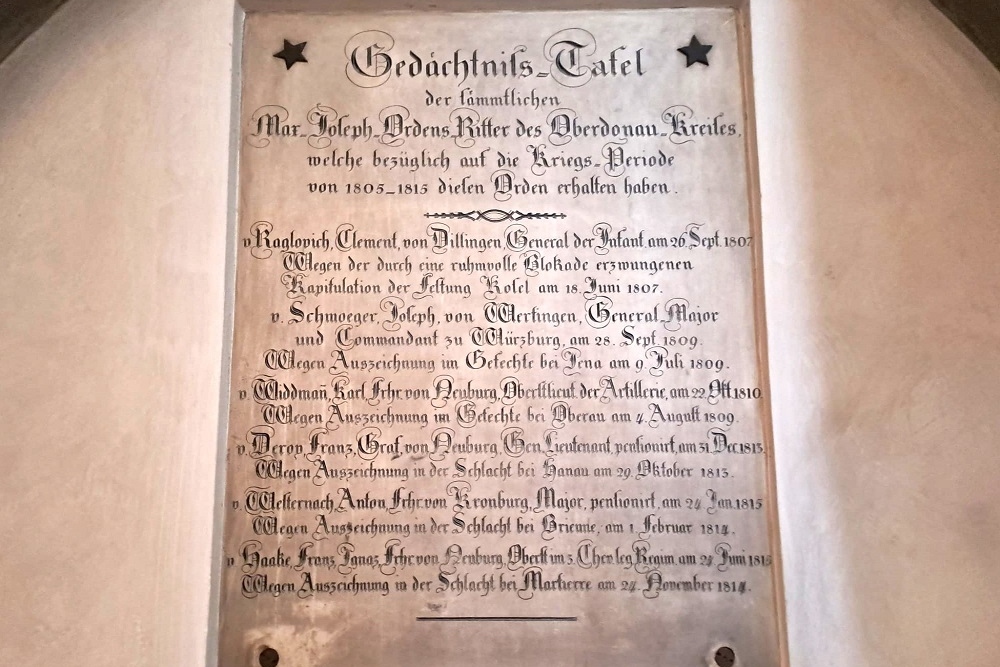 Gedächtniſs-Tafel
der ſämmtlichen
Max-Joſeph-Ordens-Ritter des Oberdonau-Kreiſes,
welche bezüglich auf die Kriegs-Periode
von 1805-1815 dieſen Orden erhalten haben.
v. Raglovich, Clement, von Dillingen, General der Infant. am 26. Sept. 1807
Wegen der durch eine ruhmvolle Blokade erzwungenen
Kapitulation der Feſtung Koſel am 18. Juni 1807.
v. Schmoeger, Joſeph, von Wertingen, General-Major
und Commandant zu Würzburg, am 28. Sept. 1809.
Wegen Auszeichnung im Gefechte bei Jena am 9. Juli 1809.
v. Widdmañ, Karl, Frhr. von Neuburg, Oberſtlieut. der Artillerie, am 22. Okt. 1810.
Wegen Auszeichnung im Gefechte bei Oberau am 4. Auguſt 1809.
v. Deroy, Franz, Graf, von Neuburg, Gen. Lieutenant, penſionirt, am 31. Dec. 1813.
Wegen Auszeichnung in der Schlacht bei Hanau am 29. Oktober 1813.
v. Weſternach, Anton, Frhr. von Kronburg, Major, penſionirt, am 24. Jan. 1815
Wegen Auszeichnung in der Schlacht bei Brienne, am 1. Februar 1814.
v. Haake, Franz, Ignaz, Frhr. von Neuburg, Oberſt im 3. Chev. leg. Regim. am 24. Juni 1815
Wegen Auszeichnung in der Schlacht bei am 24. November 1814.